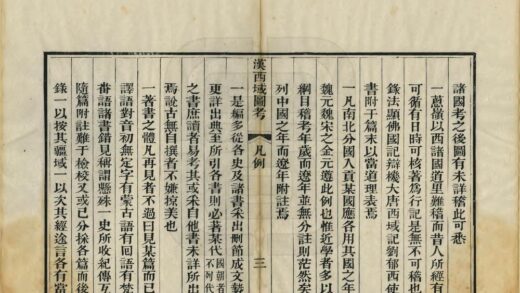 諸國考之後圖有未詳稽此可悉
一蔥嶺以西諸國道里難稽而昔人所經有
可循有日時可核著為行記是無不
錄法顯佛國記辯機大唐西域記劉郁西使
書附于篇末以當道理表焉
一凡南北分國入貢某國應各用其國之年
魏元魏宋之金元遵此例也惟近學者多以
綱目稽考年歲而遼年並無分註則茫然矣
列中國之年而遼年附註焉
漢西域圖考 凡例 三
一是編多從各史及諸書采出刪節成文
更詳出典至所引各書則必著某代國朝者不列代
之書庶讀者易考其或采自他書未詳其
焉說古無自撰者不嫌掠美也
一著書之體凡再見者不過曰見某篇而已
譯語對音初無定字有蒙古語有回語有梵
番語諸書錯見稱謂懸殊一史所收紀傳互
隨篇附註難于檢校又或已分採各篇而後
錄一以按其疆域一以次其經途言各有當